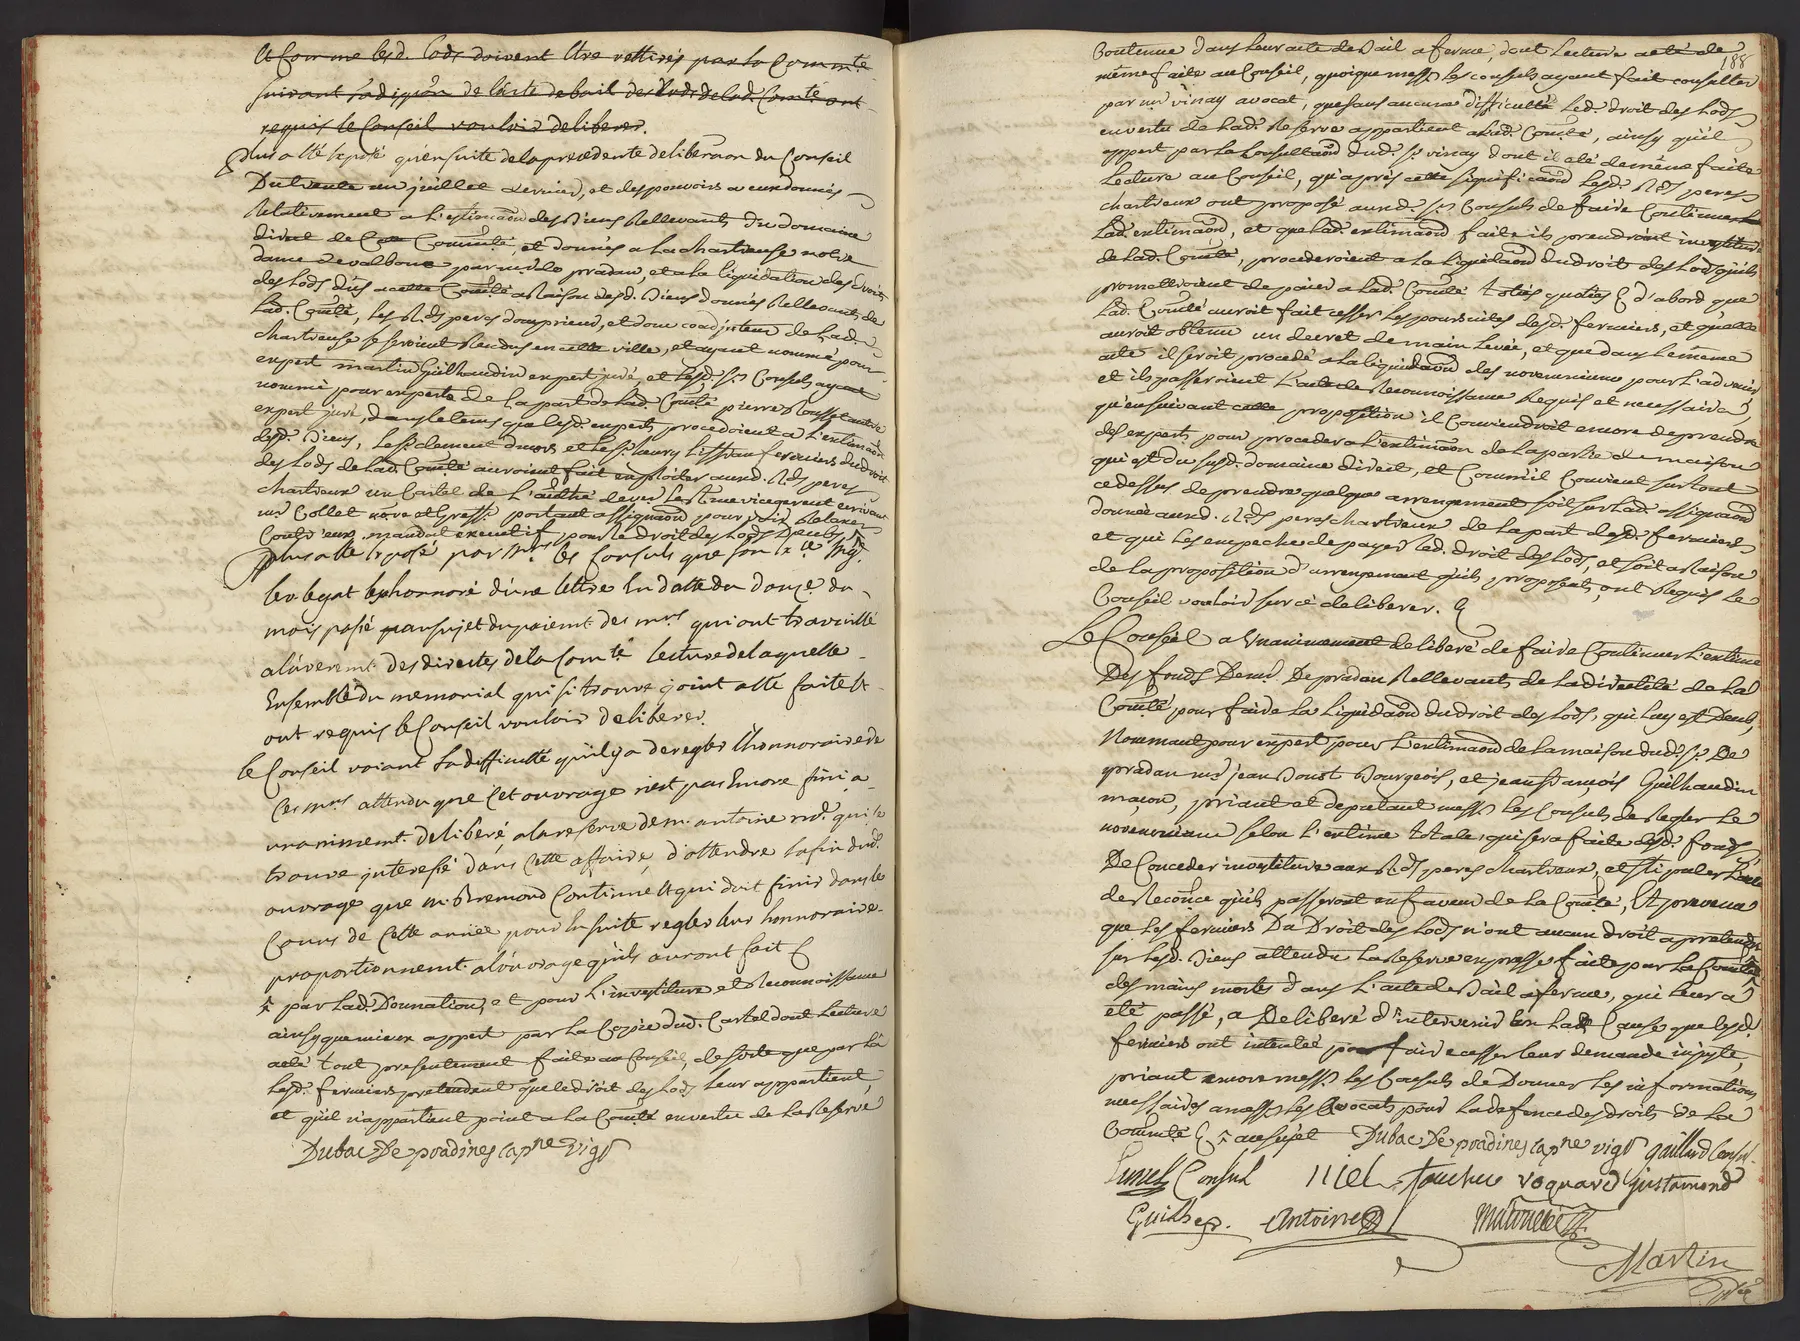 et Comme lesd. Lods doivent être rettirés par la Comm.té
suivant l'adiition de l'acte de bail des Lods de lad. Com.té ont
requis le Conseil vouloir deliberer.
Plus a été exposé qu'en suite de la precedente deliberaon du Conseil
Du trente un juillet dernier, et des pouvoirs a eux donnés
Relativement a l'estimaon des Biens Rellevants du domaine
direct de Cette Commté, et donnés a la chartreuse notre
dame de valbonne par mr de pradan, et a la liquidation des Droits
des Lods dûs a cette Comté a Raison desd. Biens donnés Rellevants de
Lad. Comté, les Rds peres dom prieur, et dom coadjuteur de Lad.
chartreuse se seroint Rendus en cette ville, et ayant nommé pour
expert martin Guilhaudin expert juré, et lesd. srs Consuls ayant
nommé pour experts de la part de lad. Comté pierre Rousset autre
expert juré, dans le tems que lesd. experts procedoient a l'extimaon
desd. Biens, le sr clement dumas et le sr henry fermiers du droit
des Lods de lad. Comté auroint fait exploiter auxd. Rds peres
chartreux un Cartel de l'authé de vice regent ecrivant
mr Collet nore et Greff. portant assignaon pour voir Relaxer
Contr'eux mandat executif pour le droit des Lods Deubs
plus a été exposé par mrs les Consuls que son Ex.ce Mgr
le v. legat les honnoré d'une lettre En datte du douze du
mois passé au sujet du paiemt. des mrs qui ont travaillé
a l'averemt. des directes de la Com.té lecture de laquelle
Ensemble du memorial qui si trouve joint a été faite et
ont requis le Conseil vouloir deliberer.
le Conseil voiant la difficulté qu'il y a de regler l'honnoraire de
Ces mrs attendu que Cet ouvrage n'est pas Encore fini a
unanimemt. deliberé a la reserve de mr. antoine nre. qui se
trouve interessé dans Cette affaire, d'attendre la fin dud.
ouvrage que mr. Bremond Continue et qui doit finir dans le
Cours de Cette année pour En suite regler leur honnoraire
proportionnemt. a l'ouvrage qu'ils auront fait
par lad. Donnation, et pour l'investiture et Reconnoissance
ainsy que mieux appert par la Copie dud. Cartel dont Lecture
a été tout presentement faite au Conseil, de sorte que par la
lesd. fermiers pretendent que le droit des Lods leur appartient
et qu'il n'appartient point a la Comté en vertu de la Reserve
Dubac De poadines capne vigr
188
Contenue dans leur acte de Bail a ferme, dont Lecture a eté de
même faite au Conseil, quoique messrs les consuls ayant fait consulter
par mr vinay avocat, que sans aucune difficulté Led. droit des Lods
en vertu de lad. Reserve appartient a lad. Comté, ainsy qu'il
appert par la Consultaon dud. sr vinay dont il a eté de même faite
Lecture au Conseil, qu'après cette significaon lesd. Rds peres
chartreux ont proposé auxd. srs Consuls de faire Continuer
Lad. extimaon, et que lad. extimaon faite ils prendroint investiture
de lad. Comté, procederoient a la liquidaon du droit des Lods qu'ils
promettroient de paier a lad. Comté toties quoties & d'abord que
Lad. Comté auroit fait cesser les poursuites desd. fermiers, et qu'elle
auroit obtenu un decret de main Levée, et que dans le même
acte il seroit procedé a la liquidaon des novennium pour l'advenir
et ils passeroient l'acte de Reconnoissance Requis et necessaire,
qu'en suivant cette proposition il Conviendroit encore de prendre
des experts pour proceder a l'extimaon de la partie de maison
qui est du susd. domaine direct, et Comm'il Convient sur tout
ce dessus de prendre quelque arrengement soit sur lad. assignaon
donnée auxd. Rds peres chartreux de la part desd. fermiers
et qui les empeche de payer led. droit des Lods, et soit a Raison
de la proposition d'arrengement qu'ils proposent, ont Requis le
Conseil vouloir sur cé deliberer.
Le Conseil a Unanimement deliberé de faire Continuer l'extime
Des fonds De mr De pradan Rellevants de la directité de la
Comté pour faire la liquidaon du droit des Lods, qui luy est Deub,
Nommant pour expert pour l'extimaon de la maison dud. sr De
pradan mr jean Bourgeois, et jean francois Guilhaudin
maçon, priant et deputant messrs les Consuls de Regler le
novennium selon l'extime totale qui sera faite desd. fonds,
De Conceder investiture aux Rds peres chartreux, et stipuler l'acte
de Reconce qu'ils passeront en faveur de la Comté, Et
que les fermiers Du Droit des Lods n'ont aucun droit a pretendre
sur lesd. Biens attendu la Reserve expresse faite par la Comté
des mains mortes dans l'acte de Bail a ferme, qui leur a
été passé, a Deliberé d'intervenir En lad. Cause que lesd.
fermiers ont intentée pour faire cesser leur demande injuste,
priant encore messrs les Consuls de Donner les informations
necessaires a messrs les avocats pour la defence des droits de la
Comunté au sujet Dubac De poadines capne vigr gaillard Consul
Consul Niel touchu voquard justamond
Guilhe Antoine
Martin